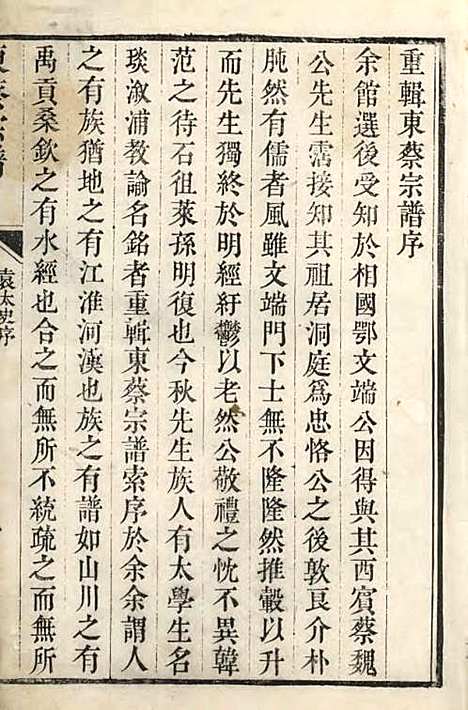 重輯東蔡宗譜序
余館選後受知於相國鄂文端公因得與其西賓蔡魏
公先生霑接知其祖居洞庭爲忠恪公之後敦良介朴
肫然有儒者風雖文端門下士無不隆隆然推轂以升
而先生獨終於明經紆鬱以老然公敬禮之忱不異韓
范之待石徂萊孫明復也今秋先生族人有太學生名
琰溆浦教諭名銘者重輯東蔡宗譜索序於余余謂人
之有族猶地之有江淮河漢也族之有譜如山川之有
禹貢桑欽之有水經也合之而無所不統疏之而無所
東蔡宗譜
袁太史序